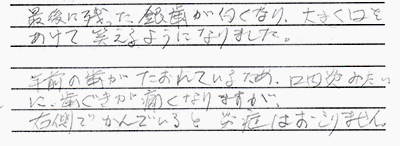 最後に残った銀歯が白くなり、大きく口を
あけて笑えるようになりました。
手前の歯がたおれているため、口内炎みたい
に、歯ぐきが痛くなりますが、
右側でかんでいると炎症はおこりません。